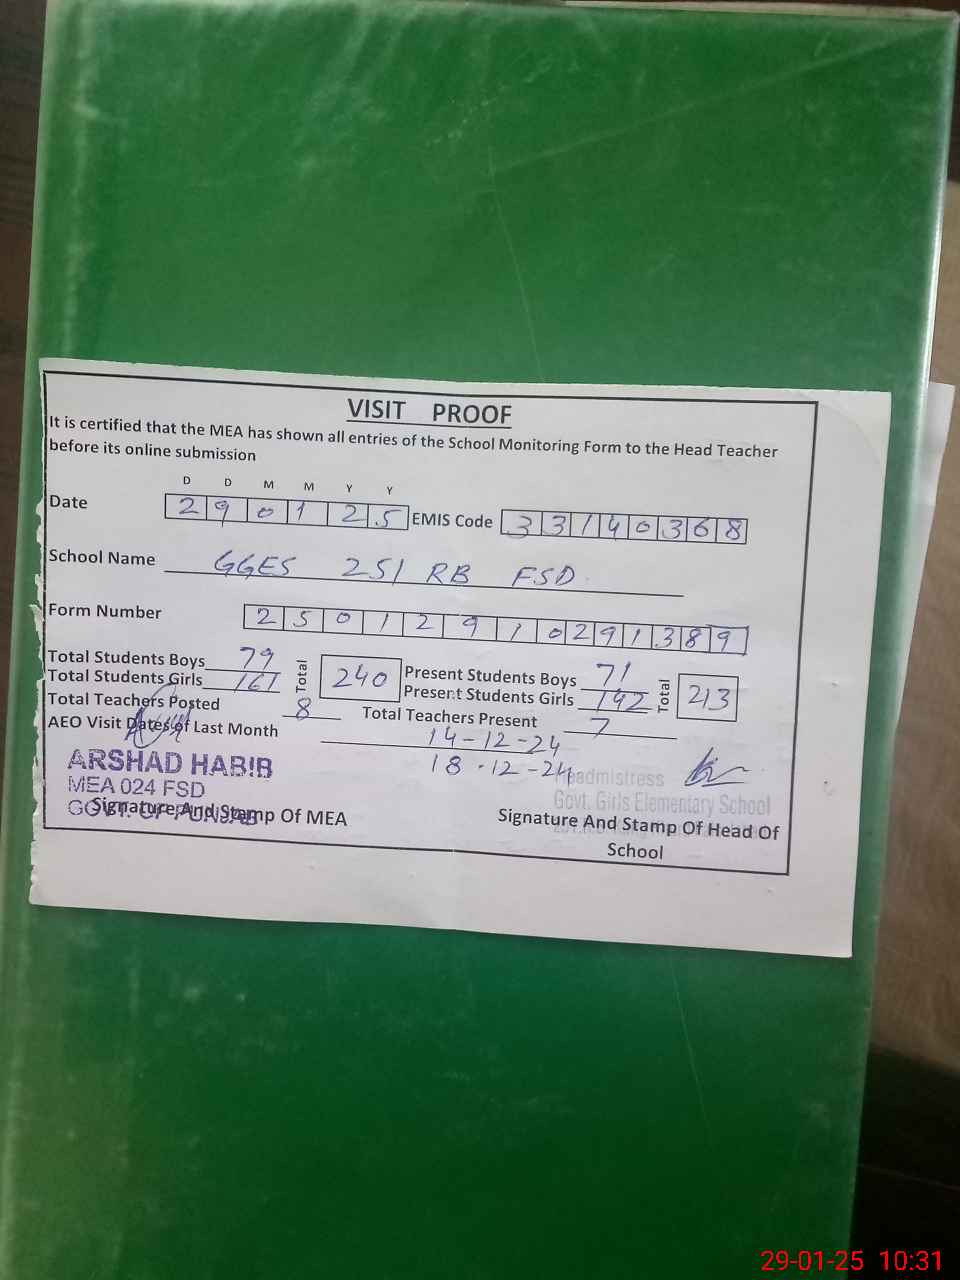 VISIT PROOF
It is certified that the MEA has shown all entries of the School Monitoring Form to the Head Teacher
before its online submission
D D M M Y Y
Date 2 9 0 1 2 5 EMIS Code 3 3 1 4 0 3 6 8
School Name GGES 251 RB FSD
Form Number 2 5 0 1 2 9 1 0 2 9 1 3 8 9
Total Students Boys 79 Total 240 Present Students Boys 71 Total 213
Total Students Girls 161 Present Students Girls 142
Total Teachers Posted 8 Total Teachers Present 7
AEO Visit Dates of Last Month 14-12-24
18-12-24
ARSHAD HABIB
MEA 024 FSD
GOVT. OF PUNJAB
Signature And Stamp Of MEA
Headmistress
Govt. Girls Elementary School
Signature And Stamp Of Head Of
School
29-01-25 10:31